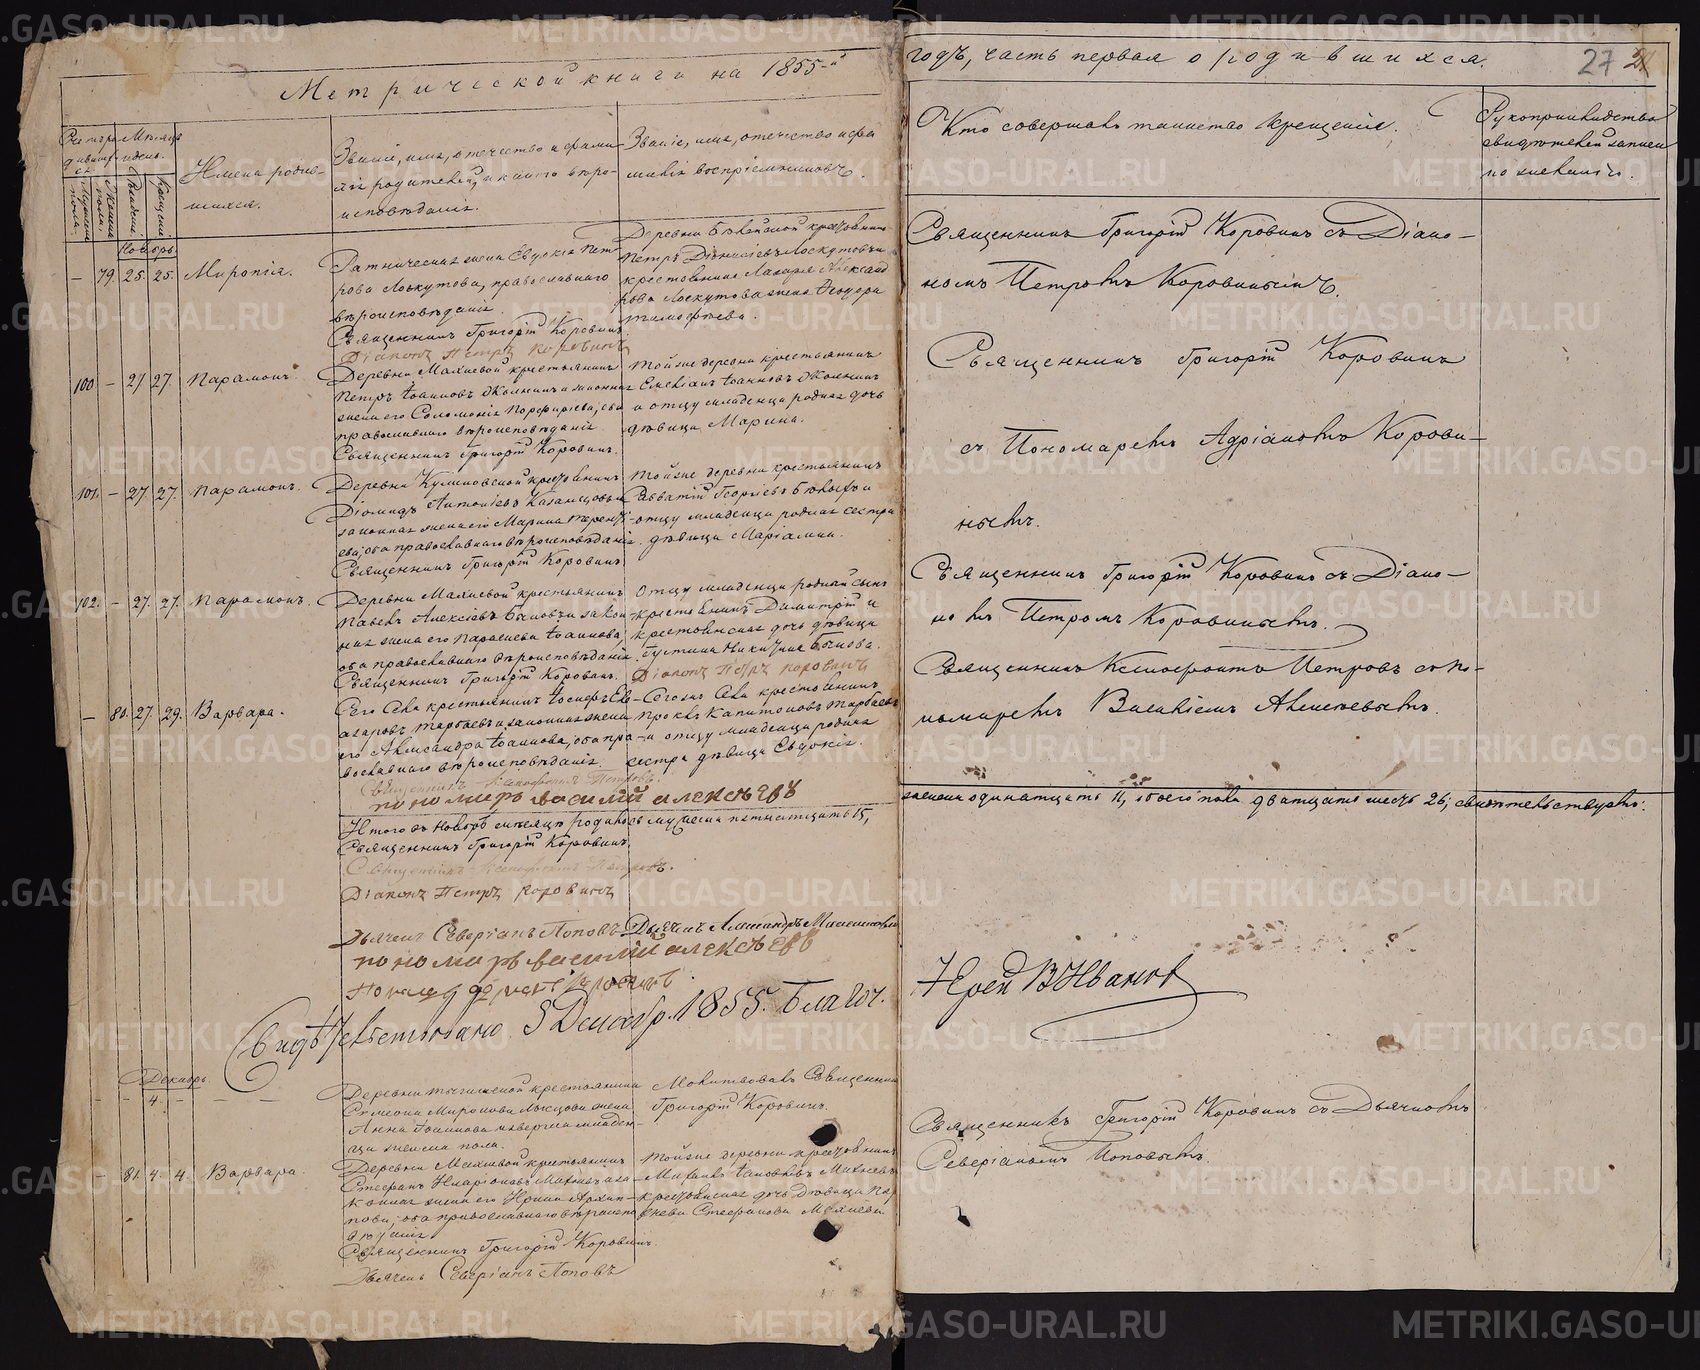 Метрической книги на 1855-й
годъ, часть первая о родившихся.
27
Имена родив-
шихся.
Званіе, имя, отечество и фами-
лія родителей, и какого вѣро-
исповѣданія.
Званіе, имя, отечество и фа-
милія воспріемниковъ.
Кто совершалъ таинство крещенія.
Рукоприкладство
свидѣтелей записи
по желанію.
Ноябрь
— 79. 25. 25. Миропія.
Евдокія Пет-
рова Лоскутова, православнаго
вѣроисповѣданія.
Священникъ Григорій Коровинъ
Діаконъ Петръ Коровинъ
Петръ Діонисіевъ Лоскутовъ и
крестьянина Лазаря Александ
рова Лоскутова жена Ѳеодора
Тимофѣева.
Священникъ Григорій Коровинъ съ Діако-
номъ Петромъ Коровинымъ.
100 — 27 27 Парамонъ.
Деревни Махневой крестьянинъ
Петръ Іоанновъ и законная
жена его Соломонія Порфиріева, оба
православнаго вѣроисповѣданія.
Священникъ Григорій Коровинъ.
Тойже деревни крестьянинъ
и отцу младенца родная дочь
дѣвица Марина.
Священникъ Григорій Коровинъ
съ Пономаремъ Адріаномъ Корови-
нымъ.
101. — 27. 27. Парамонъ.
Деревни крестьянинъ
Діомидъ Антоніевъ и
законная жена его Марина Теренті-
ева, оба православнаго вѣроисповѣданія.
Священникъ Григорій Коровинъ
Тойже деревни крестьянинъ
Савватій Георгіевъ и
отцу младенца родная сестра
дѣвица Маріамна.
102. — 27. 27. Парамонъ.
Деревни Махневой крестьянинъ
Павелъ Алексіевъ и закон-
ная жена его Параскева Іоаннова,
оба православнаго вѣроисповѣданія.
Священникъ Григорій Коровинъ.
Отцу младенца родной сынъ
крестьянинъ Димитрій и
крестьянская дочь дѣвица
Іустина
Діаконъ Петръ Коровинъ
Священникъ Григорій Коровинъ съ Діако-
номъ Петромъ Коровинымъ.
— 80. 27. 29. Варвара.
Сего Села крестьянинъ Іосифъ Ев-
и законная жена
его Александра Іоаннова, оба пра-
вославнаго вѣроисповѣданія.
Священникъ Ксенофонтъ Петровъ.
пономарь василий алексѣевъ
Сегожъ Села крестьянинъ
Проклъ Капитоновъ
и отцу младенца родная
сестра дѣвица Евдокія.
Священникъ Ксенофонтъ Петровъ съ По-
номаремъ Василіемъ Алексѣевымъ.
Итого въ Ноябрѣ мѣсяцѣ родилось мужеска пятнатцать 15,
женска одинатцать 11, обоего пола дватцать шесть 26; свидѣтельствуемъ:
Священникъ Григорій Коровинъ.
Священникъ Ксенофонтъ Петровъ.
Діаконъ Петръ Коровинъ
Дьячекъ Северіанъ Поповъ Дьячекъ Александръ
пономарь василий алексѣевъ
Свидѣтельствовано 5 Декабр. 1855. Благоч.
Іерей В Ивановъ
Декабрь
— 4. — — —
крестьянина
Симеона Миронова жена
Анна Іоаннова извергла младен-
ца женска пола.
Молитвовалъ Священникъ
Григорій Коровинъ.
— 81. 4. 4. Варвара.
Деревни Махневой крестьянинъ
Стефанъ Иларіоновъ Махневъ и за-
конная жена его Ирина Архип-
пова, оба православнаго вѣроиспо
вѣданія
Священникъ Григорій Коровинъ.
Дьячекъ Северіанъ Поповъ
Тойже деревни крестьянинъ
Михаилъ Махневъ
крестьянская дочь дѣвица Па-
Стефанова Махнева
Священникъ Григорій Коровинъ съ Дьячкомъ
Северіаномъ Поповымъ.
METRIKI.GASO-URAL.RU